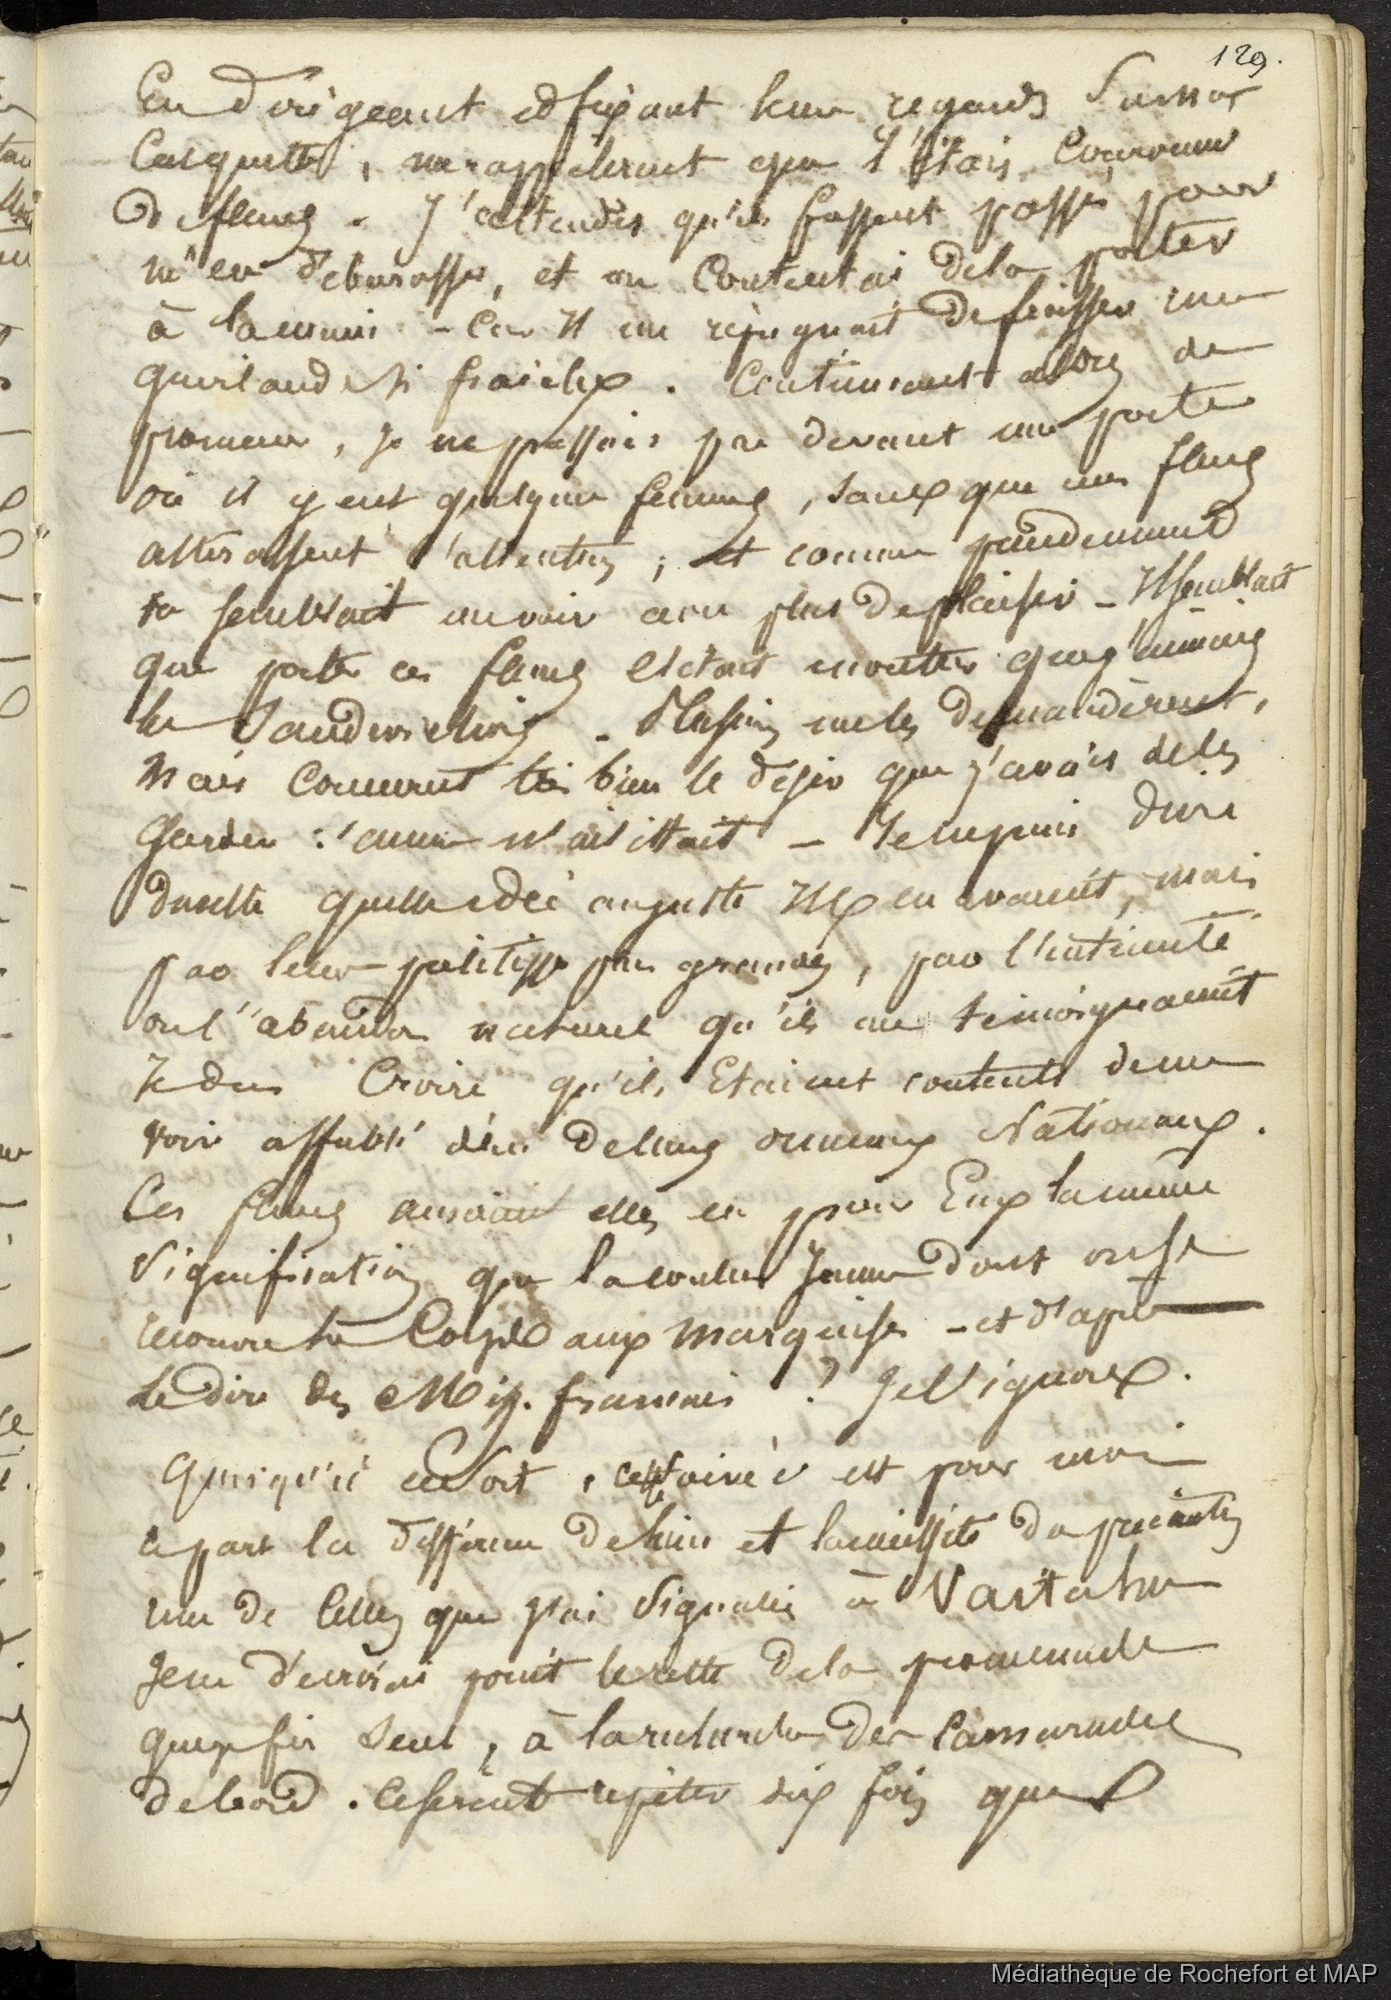 129.
En dirigeant et fixant leurs regards sur ma
Casquette, me rappelerent que j'étais Couronné
de fleurs. J'attendis qu'ils fussent passés pour
m'en debarasser, et me Contentai de la porter
à la main - Car Il me repugnait de froisser une
guirlande si fraiche. Continuant alors de
promener, je ne passais pas devant une porte
où il y eut quelques femmes, sans que mes fleurs
attirassent l'attention; et comme
semblait me voir avec plus de plaisir - Il semblait
que porter ces fleurs c'était montrer que j'aimais
les Sandwichois - Plusieurs me les demandèrent,
Mais Comprirent très bien le désir que j'avais de les
Garder : aucun n'insistait - Je ne puis dire
au juste quelle idée Ils en avaient, mais
par leur politesse plus grande, par l'intimité
ou l'abandon naturel qu'ils me témoignaient
Je dus Croire qu'ils Etaient contents de me
voir affublé d'un de leurs ornemens Nationaux.
Ces fleurs auraient elles eu pour Eux la même
Signification que la couleur Jaune dont on se
recouvre le Corps aux Marquises - et d'après
Le dire des Miss. francais ? Je l'ignore.
Quoiqu'il en soit, cette soirée est pour moi
à part la différence de lieu et la
une de Celles que j'ai Signalées à Vaitahu
Je ne décrirai point le reste de la promenade
que je fis Seul, à la recherche des Camarades
de bord. Ce serait répéter dix fois que
Médiathèque de Rochefort et MAP